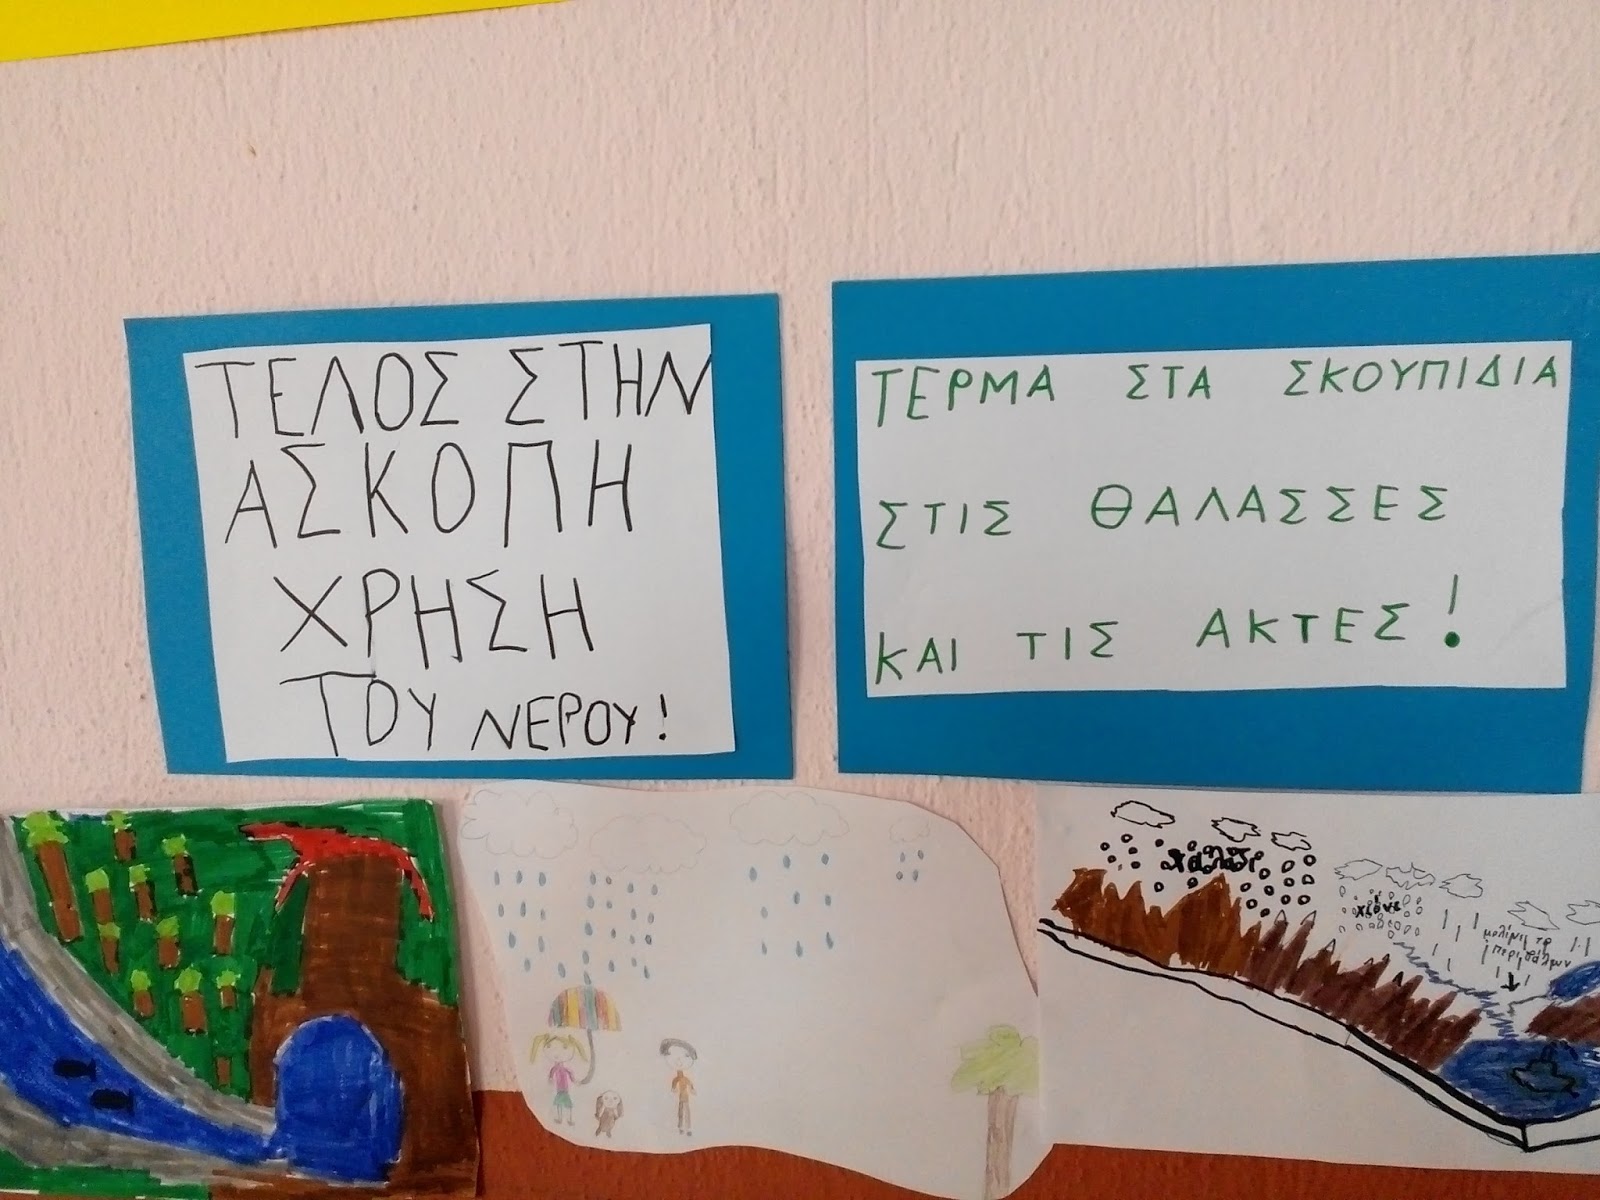 ΤΕΛΟΣ ΣΤΗΝ
ΑΣΚΟΠΗ
ΧΡΗΣΗ
ΤΟΥ ΝΕΡΟΥ!
ΤΕΡΜΑ ΣΤΑ ΣΚΟΥΠΙΔΙΑ
ΣΤΙΣ ΘΑΛΑΣΣΕΣ
ΚΑΙ ΤΙΣ ΑΚΤΕΣ!
χαλάζι
χιόνι